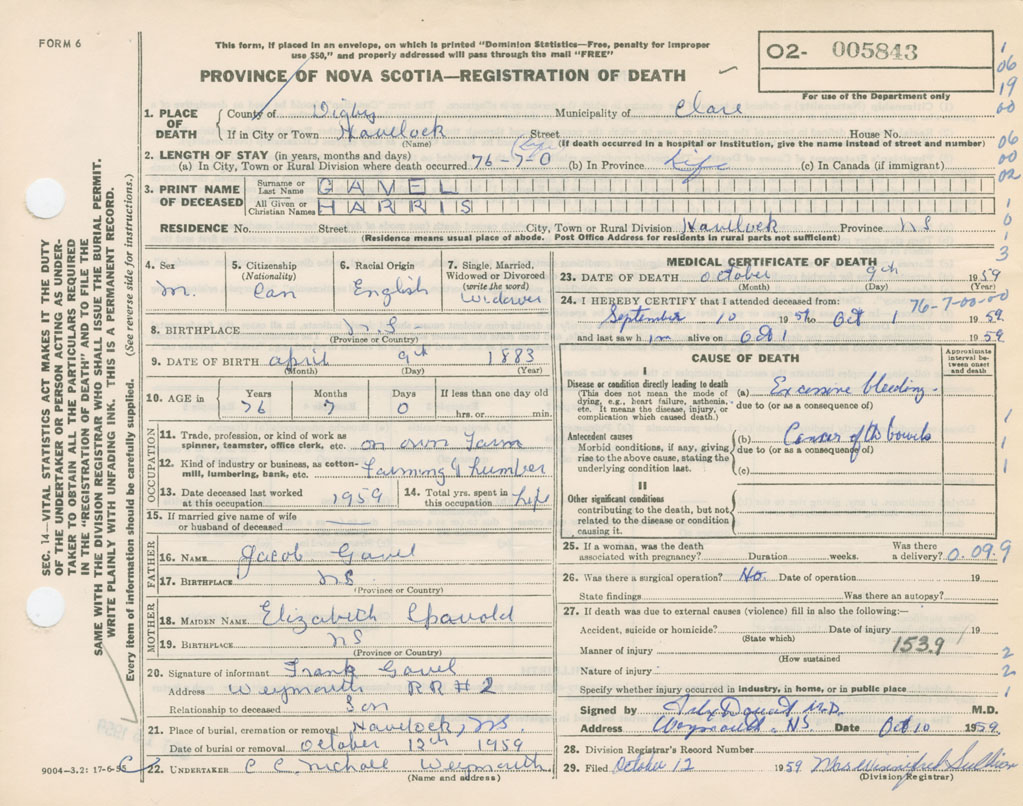 FORM 6
This form, if placed in an envelope, on which is printed "Dominion Statistics—Free, penalty for improper
use $50," and properly addressed will pass through the mail "FREE"
PROVINCE OF NOVA SCOTIA—REGISTRATION OF DEATH
O2- 005843
For use of the Department only
1. PLACE OF DEATH County of Digby Municipality of Clare
If in City or Town Havelock Street House No.
(Name) (If death occurred in a hospital or institution, give the name instead of street and number)
2. LENGTH OF STAY (in years, months and days) Life
(a) In City, Town or Rural Division where death occurred 76-7-0 (b) In Province Life (c) In Canada (if immigrant)
3. PRINT NAME OF DECEASED Surname or Last Name GAVEL
All Given or Christian Names HARRIS
RESIDENCE No. Street City, Town or Rural Division Havelock Province NS
(Residence means usual place of abode. Post Office Address for residents in rural parts not sufficient)
4. Sex M.
5. Citizenship (Nationality) Can
6. Racial Origin English
7. Single, Married, Widowed or Divorced (write the word) Widower
8. BIRTHPLACE N.S
(Province or Country)
9. DATE OF BIRTH April 9th 1883
(Month) (Day) (Year)
10. AGE in Years Months Days If less than one day old
76 7 0 hrs. or min.
OCCUPATION
11. Trade, profession, or kind of work as spinner, teamster, office clerk, etc. on own Farm
12. Kind of industry or business, as cotton-mill, lumbering, bank, etc. Farming & Lumber
13. Date deceased last worked at this occupation 1959
14. Total yrs. spent in this occupation Life
15. If married give name of wife or husband of deceased
FATHER
16. NAME Jacob Gavel
17. BIRTHPLACE NS
(Province or Country)
MOTHER
18. MAIDEN NAME Elizabeth
19. BIRTHPLACE NS
(Province or Country)
20. Signature of informant Frank Gavel
Address Weymouth RR # 2
Relationship to deceased Son
21. Place of burial, cremation or removal Havelock, NS
Date of burial or removal October 12th 1959
22. UNDERTAKER C C Nichall Weymouth
(Name and address)
9004-3.2: 17-6-55
MEDICAL CERTIFICATE OF DEATH
23. DATE OF DEATH October 9th 1959
(Month) (Day) (Year)
24. I HEREBY CERTIFY that I attended deceased from: 76-7-00-00
September 10 1959 to Oct 1 1959
and last saw him alive on Oct 1 1959
CAUSE OF DEATH
Approximate interval between onset and death
I
Disease or condition directly leading to death (a) Excessive bleeding
(This does not mean the mode of dying, e.g., heart failure, asthenia, etc. It means the disease, injury, or complication which caused death.) due to (or as a consequence of)
Antecedent causes (b) Cancer of the bowels
Morbid conditions, if any, giving rise to the above cause, stating the underlying condition last. due to (or as a consequence of)
(c)
II
Other significant conditions
contributing to the death, but not related to the disease or condition causing it.
25. If a woman, was the death associated with pregnancy? Duration weeks. Was there a delivery? 0.099
26. Was there a surgical operation? No. Date of operation 19
State findings Was there an autopsy?
27. If death was due to external causes (violence) fill in also the following:—
Accident, suicide or homicide? Date of injury 19
(State which)
Manner of injury 153.9
(How sustained)
Nature of injury
Specify whether injury occurred in industry, in home, or in public place
Signed by M.D. M.D.
Address Weymouth, NS Date Oct 10 1959
28. Division Registrar's Record Number
29. Filed October 12 1959 Mrs Winnifred Sullivan
(Division Registrar)
SEC. 14—VITAL STATISTICS ACT MAKES IT THE DUTY
OF THE UNDERTAKER OR PERSON ACTING AS UNDER-
TAKER TO OBTAIN ALL THE PARTICULARS REQUIRED
IN THE "REGISTRATION OF DEATH" AND TO FILE THE
SAME WITH THE DIVISION REGISTRAR WHO SHALL ISSUE THE BURIAL PERMIT.
WRITE PLAINLY WITH UNFADING INK. THIS IS A PERMANENT RECORD.
Every item of information should be carefully supplied. (See reverse side for instructions.)
1
06
19
00
06
00
02
1
0
1
3
1
1
1
2
2
1